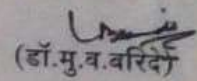 (डॉ.मु.व.बरिदे)